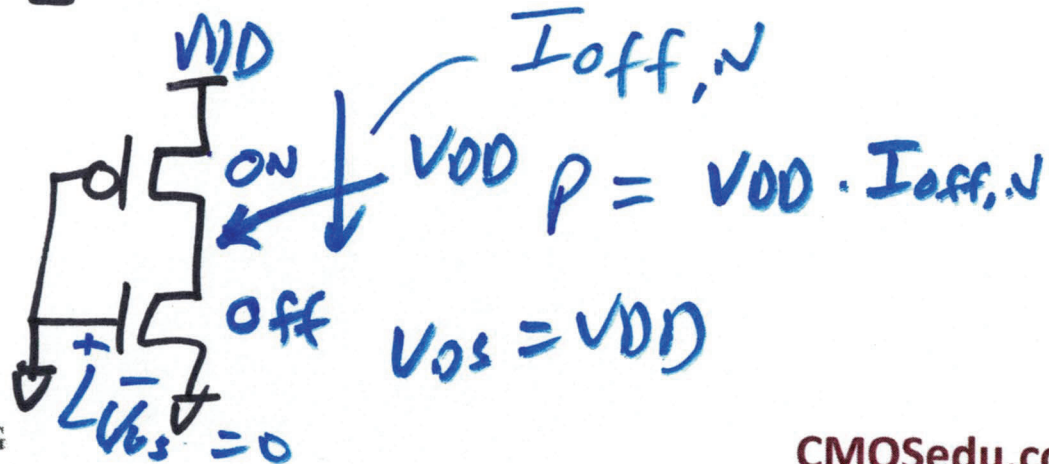 VDD
Ioff,N
ON
VDD
P = VDD · Ioff,N
Off
VDS = VDD
+
-
VGS = 0
CMOSedu.co